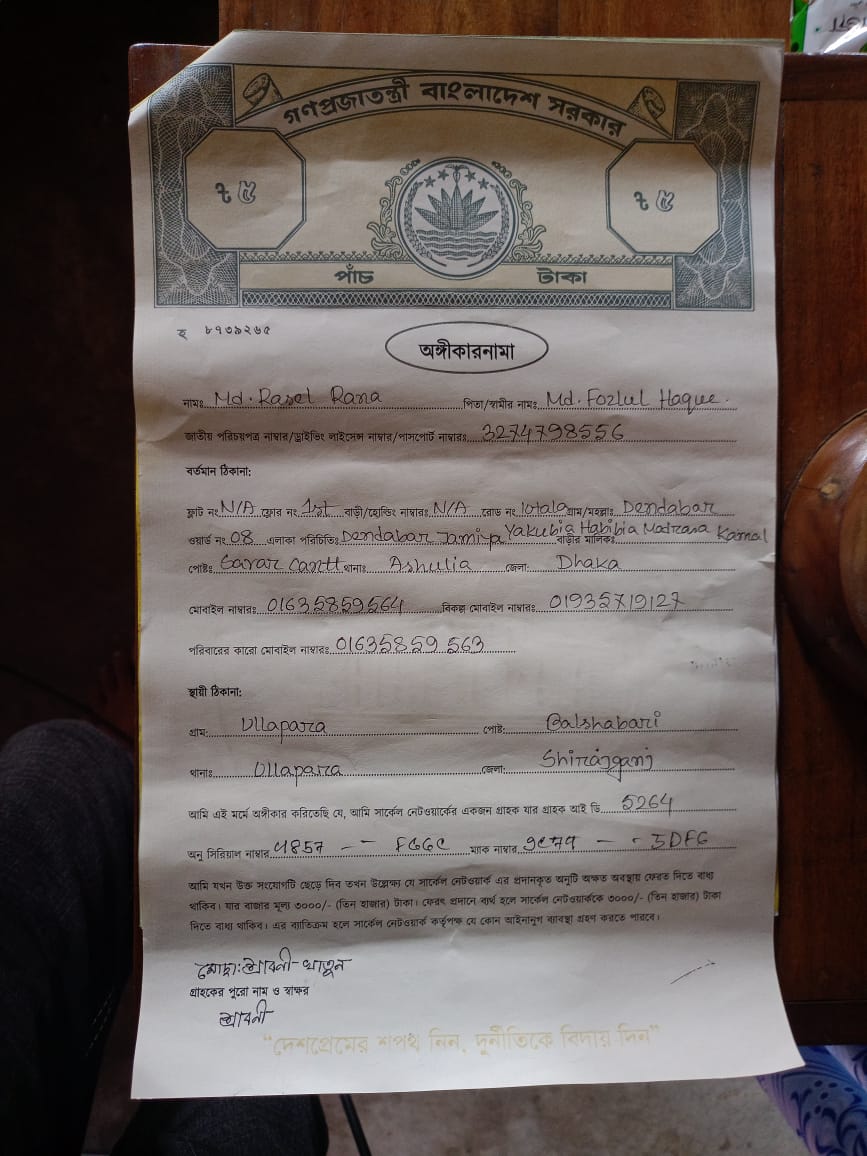 গণপ্রজাতন্ত্রী বাংলাদেশ সরকার
৳ ৫ ৳ ৫
পাঁচ টাকা
হ ৮৭৩৯২৬৫
অঙ্গীকারনামা
নামঃ Md. Rasel Rana পিতা/স্বামীর নামঃ Md. Fozlul Haque.
জাতীয় পরিচয়পত্র নাম্বার/ড্রাইভিং লাইসেন্স নাম্বার/পাসপোর্ট নাম্বারঃ 3274798556
বর্তমান ঠিকানা:
ফ্লাট নং N/A ফ্লোর নং 1st বাড়ী/হোল্ডিং নাম্বারঃ N/A রোড নং গ্রাম/মহল্লাঃ Dendabar
ওয়ার্ড নং 08 এলাকা পরিচিতিঃ Dendabar Jamiya Yakubia Habibia Madrasa বাড়ীর মালিকঃ Kamal
পোষ্টঃ Savar Cantt থানাঃ Ashulia জেলা: Dhaka
মোবাইল নাম্বারঃ 01635859564 বিকল্প মোবাইল নাম্বারঃ 01935719127
পরিবারের কারো মোবাইল নাম্বারঃ 01635859563
স্থায়ী ঠিকানা:
গ্রাম: Ullapara পোষ্ট: Balshabari
থানাঃ Ullapara জেলা: Shirajganj
আমি এই মর্মে অঙ্গীকার করিতেছি যে, আমি সার্কেল নেটওয়ার্কের একজন গ্রাহক যার গ্রাহক আই ডি 5264
অনু সিরিয়াল নাম্বার 4857 - - FGGC ম্যাক নাম্বার - - 5DFG
আমি যখন উক্ত সংযোগটি ছেড়ে দিব তখন উল্লেখ্য যে সার্কেল নেটওয়ার্ক এর প্রদানকৃত অনুটি অক্ষত অবস্থায় ফেরত দিতে বাধ্য
থাকিব। যার বাজার মূল্য ৩০০০/- (তিন হাজার) টাকা। ফেরৎ প্রদানে ব্যর্থ হলে সার্কেল নেটওয়ার্ককে ৩০০০/- (তিন হাজার) টাকা
দিতে বাধ্য থাকিব। এর ব্যতিক্রম হলে সার্কেল নেটওয়ার্ক কর্তৃপক্ষ যে কোন আইনানুগ ব্যবস্থা গ্রহণ করতে পারবে।
মোছা: শ্রাবনী খাতুন
গ্রাহকের পুরো নাম ও স্বাক্ষর
শ্রাবনী
"দেশপ্রেমের শপথ নিন, দুর্নীতিকে বিদায় দিন"